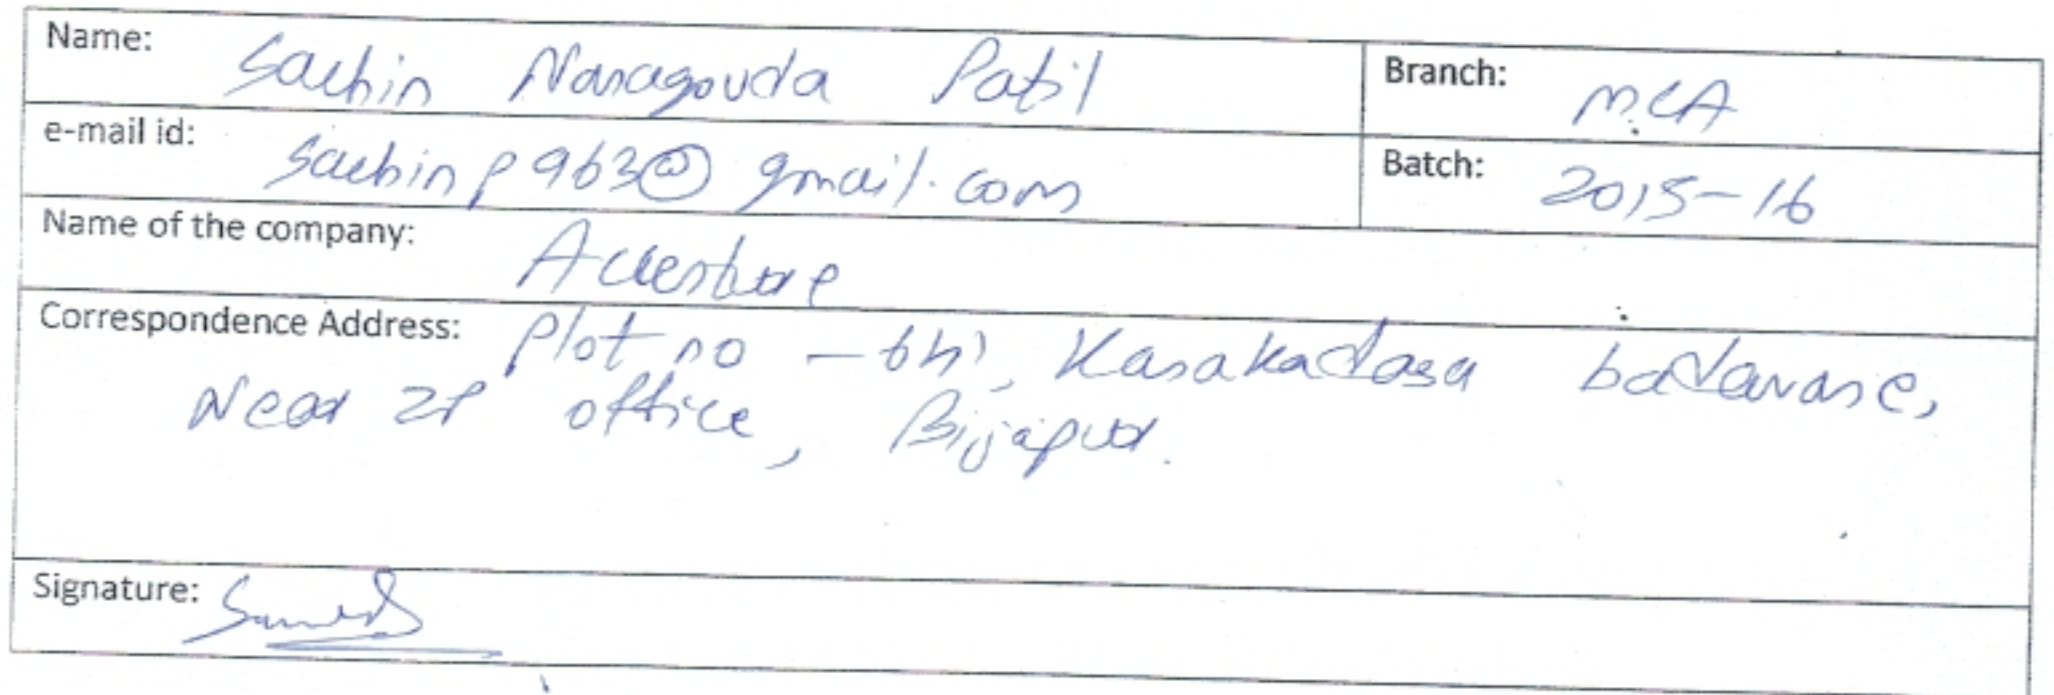 Name: Sachin Nanagouda Patil Branch: MCA
e-mail id: sachinp963@gmail.com Batch: 2015-16
Name of the company: Accenture
Correspondence Address: Plot no - Kanakadasa badavane,
Near ZP office, Bijapur.
Signature: